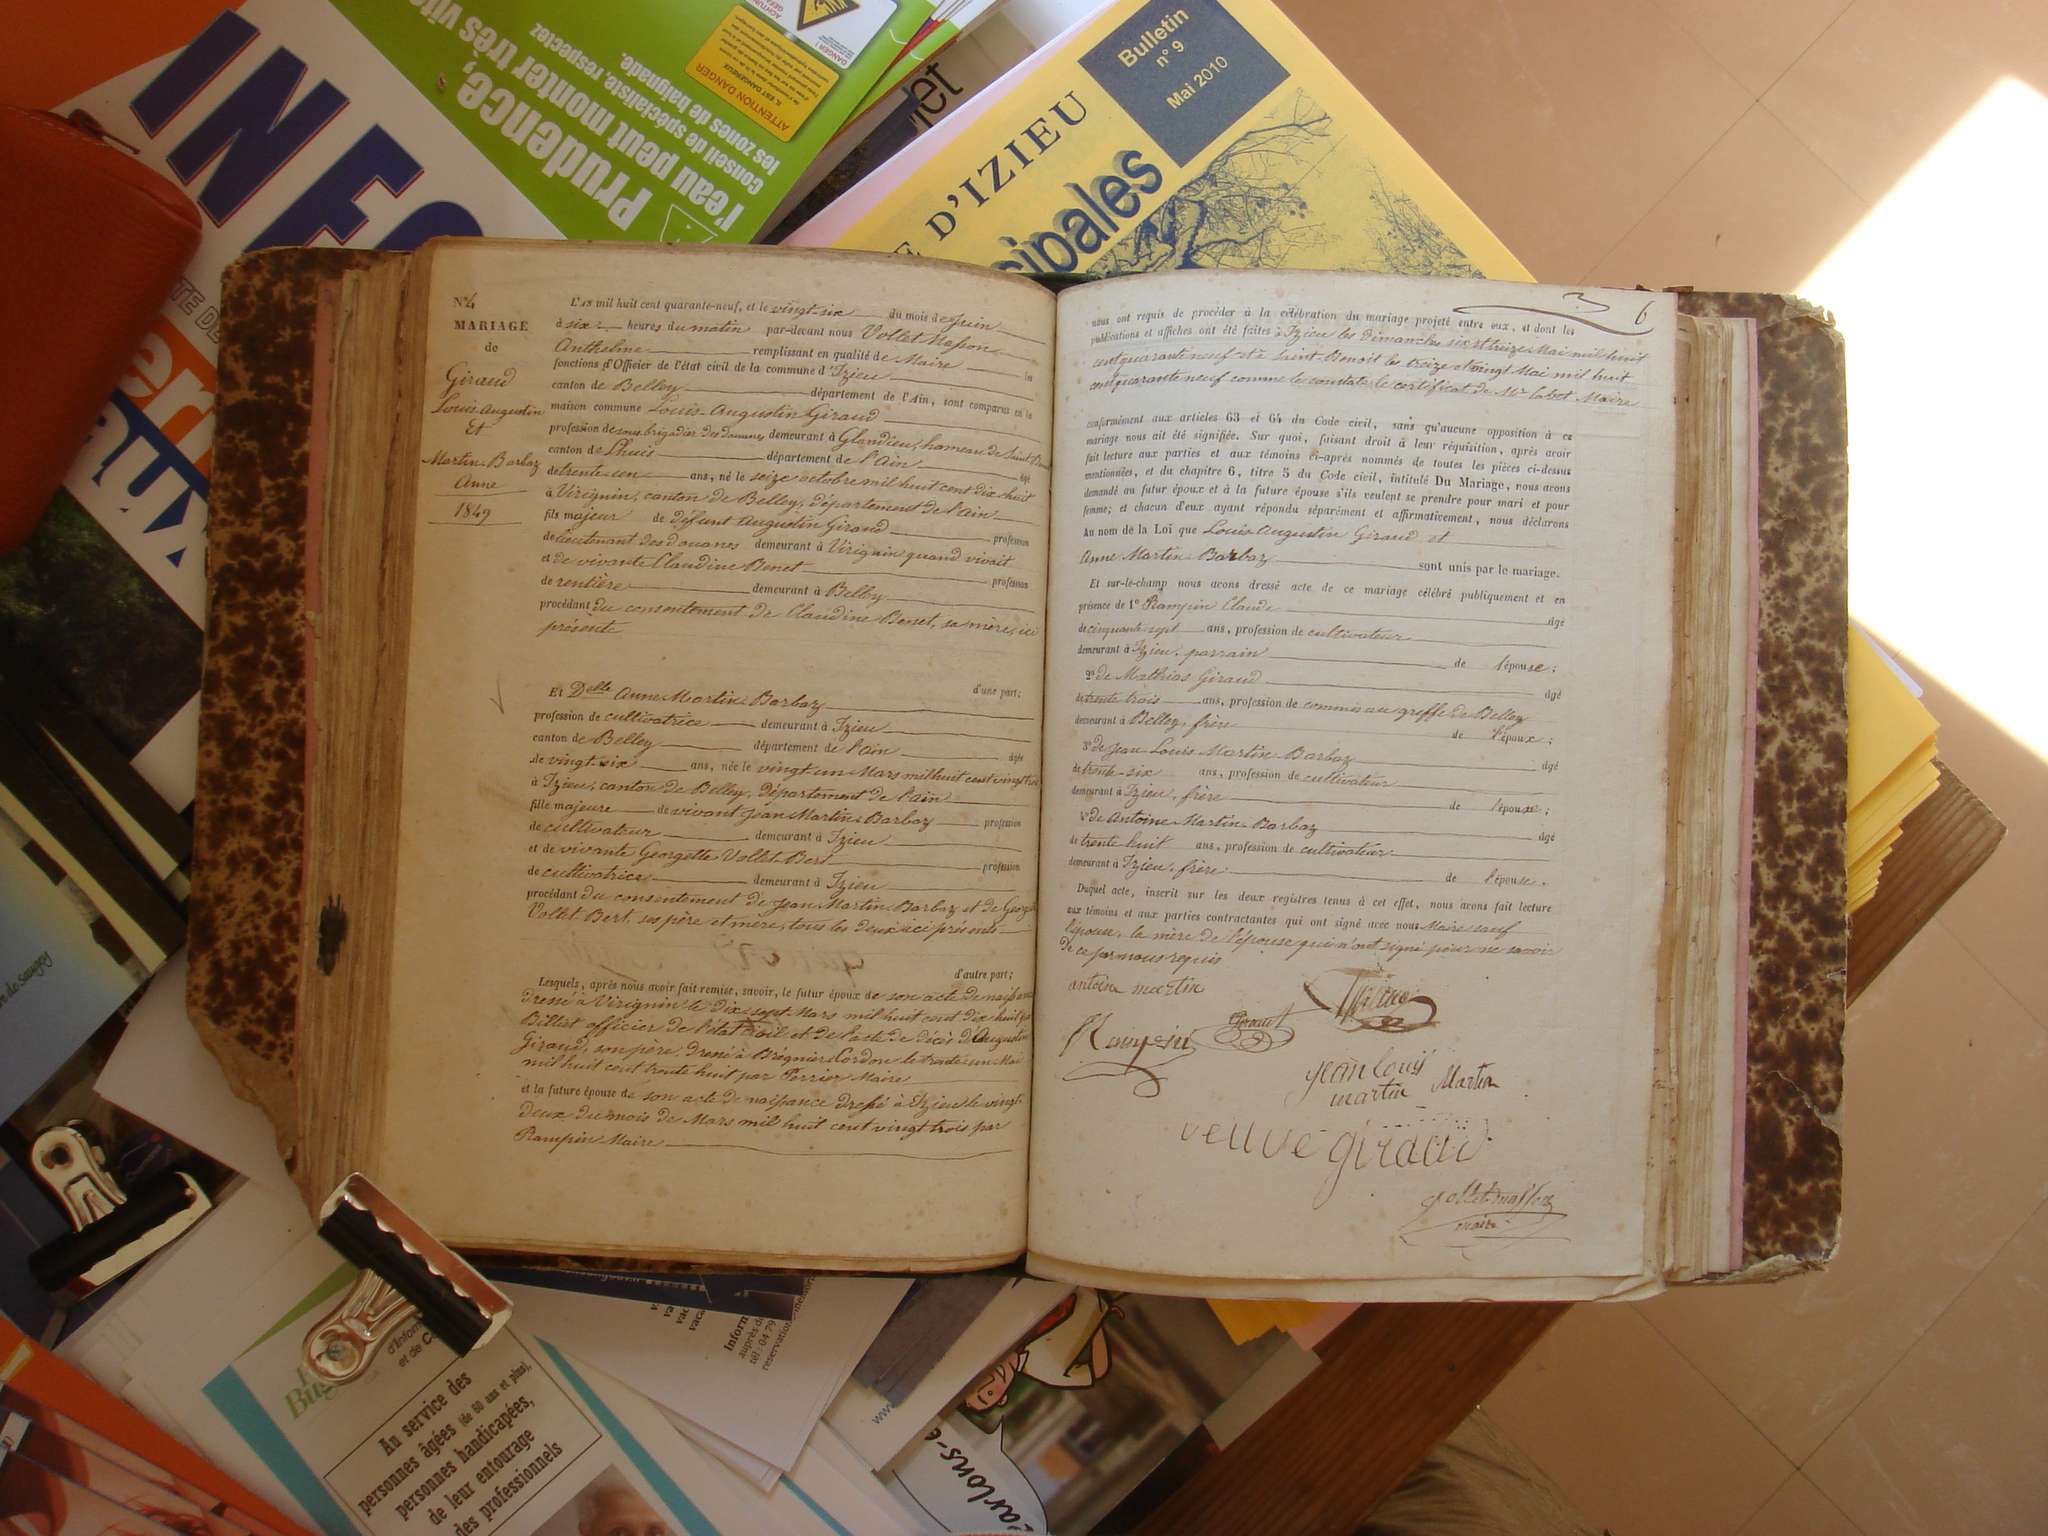 INFO
Prudence,
l'eau peut monter très vite
conseil de spécialiste, respectez
les zones de baignade.
ATTENTION DANGER
Bulletin
n° 9
Mai 2010
E D'IZIEU
cipales
N° 4
MARIAGE
de
Giraud
Louis-Augustin
Et
Martin-Barbaz
Anne
1849
L'AN mil huit cent quarante-neuf, et le vingt-six du mois de Juin
à six heures du matin par-devant nous Vollet Masson
Anthelme remplissant en qualité de Maire les
fonctions d'Officier de l'état civil de la commune d'Izieu
canton de Belley département de l'Ain, sont comparus en la
maison commune Louis-Augustin Giraud
profession de sous brigadier des douanes demeurant à Glandieu, hameau de Saint-Benoit
canton de Lhuis département de l'Ain âgé
de trente-un ans, né le seize octobre mil huit cent dix huit
à Virignin, canton de Belley, département de l'ain
fils majeur de défunt Augustin Giraud profession
de lieutenant des douanes demeurant à Virignin quand vivait
et de vivante Claudine Benet profession
de rentière demeurant à Belley
procédant du consentement de Claudine Benet, sa mère, ici
présente
d'une part;
Et Delle Anne Martin Barbaz
profession de cultivatrice demeurant à Izieu
canton de Belley département de l'ain âgée
de vingt-six ans, née le vingt un Mars mil huit cent vingt trois
à Izieu, canton de Belley, Département de l'ain
fille majeure de vivant Jean Martin-Barbaz profession
de cultivateur demeurant à Izieu
et de vivante Georgette Vollet-Bert profession
de cultivatrice demeurant à Izieu
procédant du consentement de Jean Martin Barbaz et de Georgette
Vollet Bert, ses père et mère, tous les deux ici présents
d'autre part;
Lesquels, après nous avoir fait remise, savoir, le futur époux de son acte de naissance
dressé à Virignin le dix-sept Mars mil huit cent dix huit par
Billiet officier de l'état civil et de l'acte de décès d'Augustin
Giraud, son père, dressé à Brégnier-Cordon le trente un Mai
mil huit cent trente huit par Perrier Maire
et la future épouse de son acte de naissance dressé à Izieu le vingt
deux du mois de Mars mil huit cent vingt trois par
Rampin Maire
6
nous ont requis de procéder à la célébration du mariage projeté entre eux, et dont les
publications et affiches ont été faites à Izieu les dimanches six et treize Mai mil huit
cent quarante neuf et à Saint-Benoit les treize et vingt Mai mil huit
cent quarante neuf comme le constate le certificat de Mr Cabet Maire
conformément aux articles 63 et 64 du Code civil, sans qu'aucune opposition à ce
mariage nous ait été signifiée. Sur quoi, faisant droit à leur réquisition, après avoir
fait lecture aux parties et aux témoins ci-après nommés de toutes les pièces ci-dessus
mentionnées, et du chapitre 6, titre 5 du Code civil, intitulé Du Mariage, nous avons
demandé au futur époux et à la future épouse s'ils veulent se prendre pour mari et pour
femme; et chacun d'eux ayant répondu séparément et affirmativement, nous déclarons
Au nom de la Loi que Louis-Augustin Giraud et
Anne Martin Barbaz sont unis par le mariage.
Et sur-le-champ nous avons dressé acte de ce mariage célébré publiquement et en
présence de 1° Rampin Claude âgé
de cinquante sept ans, profession de cultivateur
demeurant à Izieu, parrain de l'épouse;
2° de Mathias Giraud âgé
de trente trois ans, profession de commis au greffe de Belley
demeurant à Belley, frère de l'époux;
3° de Jean Louis Martin Barbaz âgé
de trente-six ans, profession de cultivateur
demeurant à Izieu, frère de l'épouse;
4° de Antoine Martin-Barbaz âgé
de trente huit ans, profession de cultivateur
demeurant à Izieu, frère de l'épouse.
Duquel acte, inscrit sur les deux registres tenus à cet effet, nous avons fait lecture
aux témoins et aux parties contractantes qui ont signé avec nous Maire sauf
l'épouse, la mère de l'épouse qui n'ont signé pour ne savoir
de ce par nous requis
antoine martin
Rampin
Giraud
jean louis
martin
Martin
veuve giraud
vollet masson
maire
Au service des
personnes âgées (de 60 ans et plus),
personnes handicapées,
de leur entourage
des professionnels
d'Inform
et de Co
Inform
auprès du
tél : 04 79
reservation
www